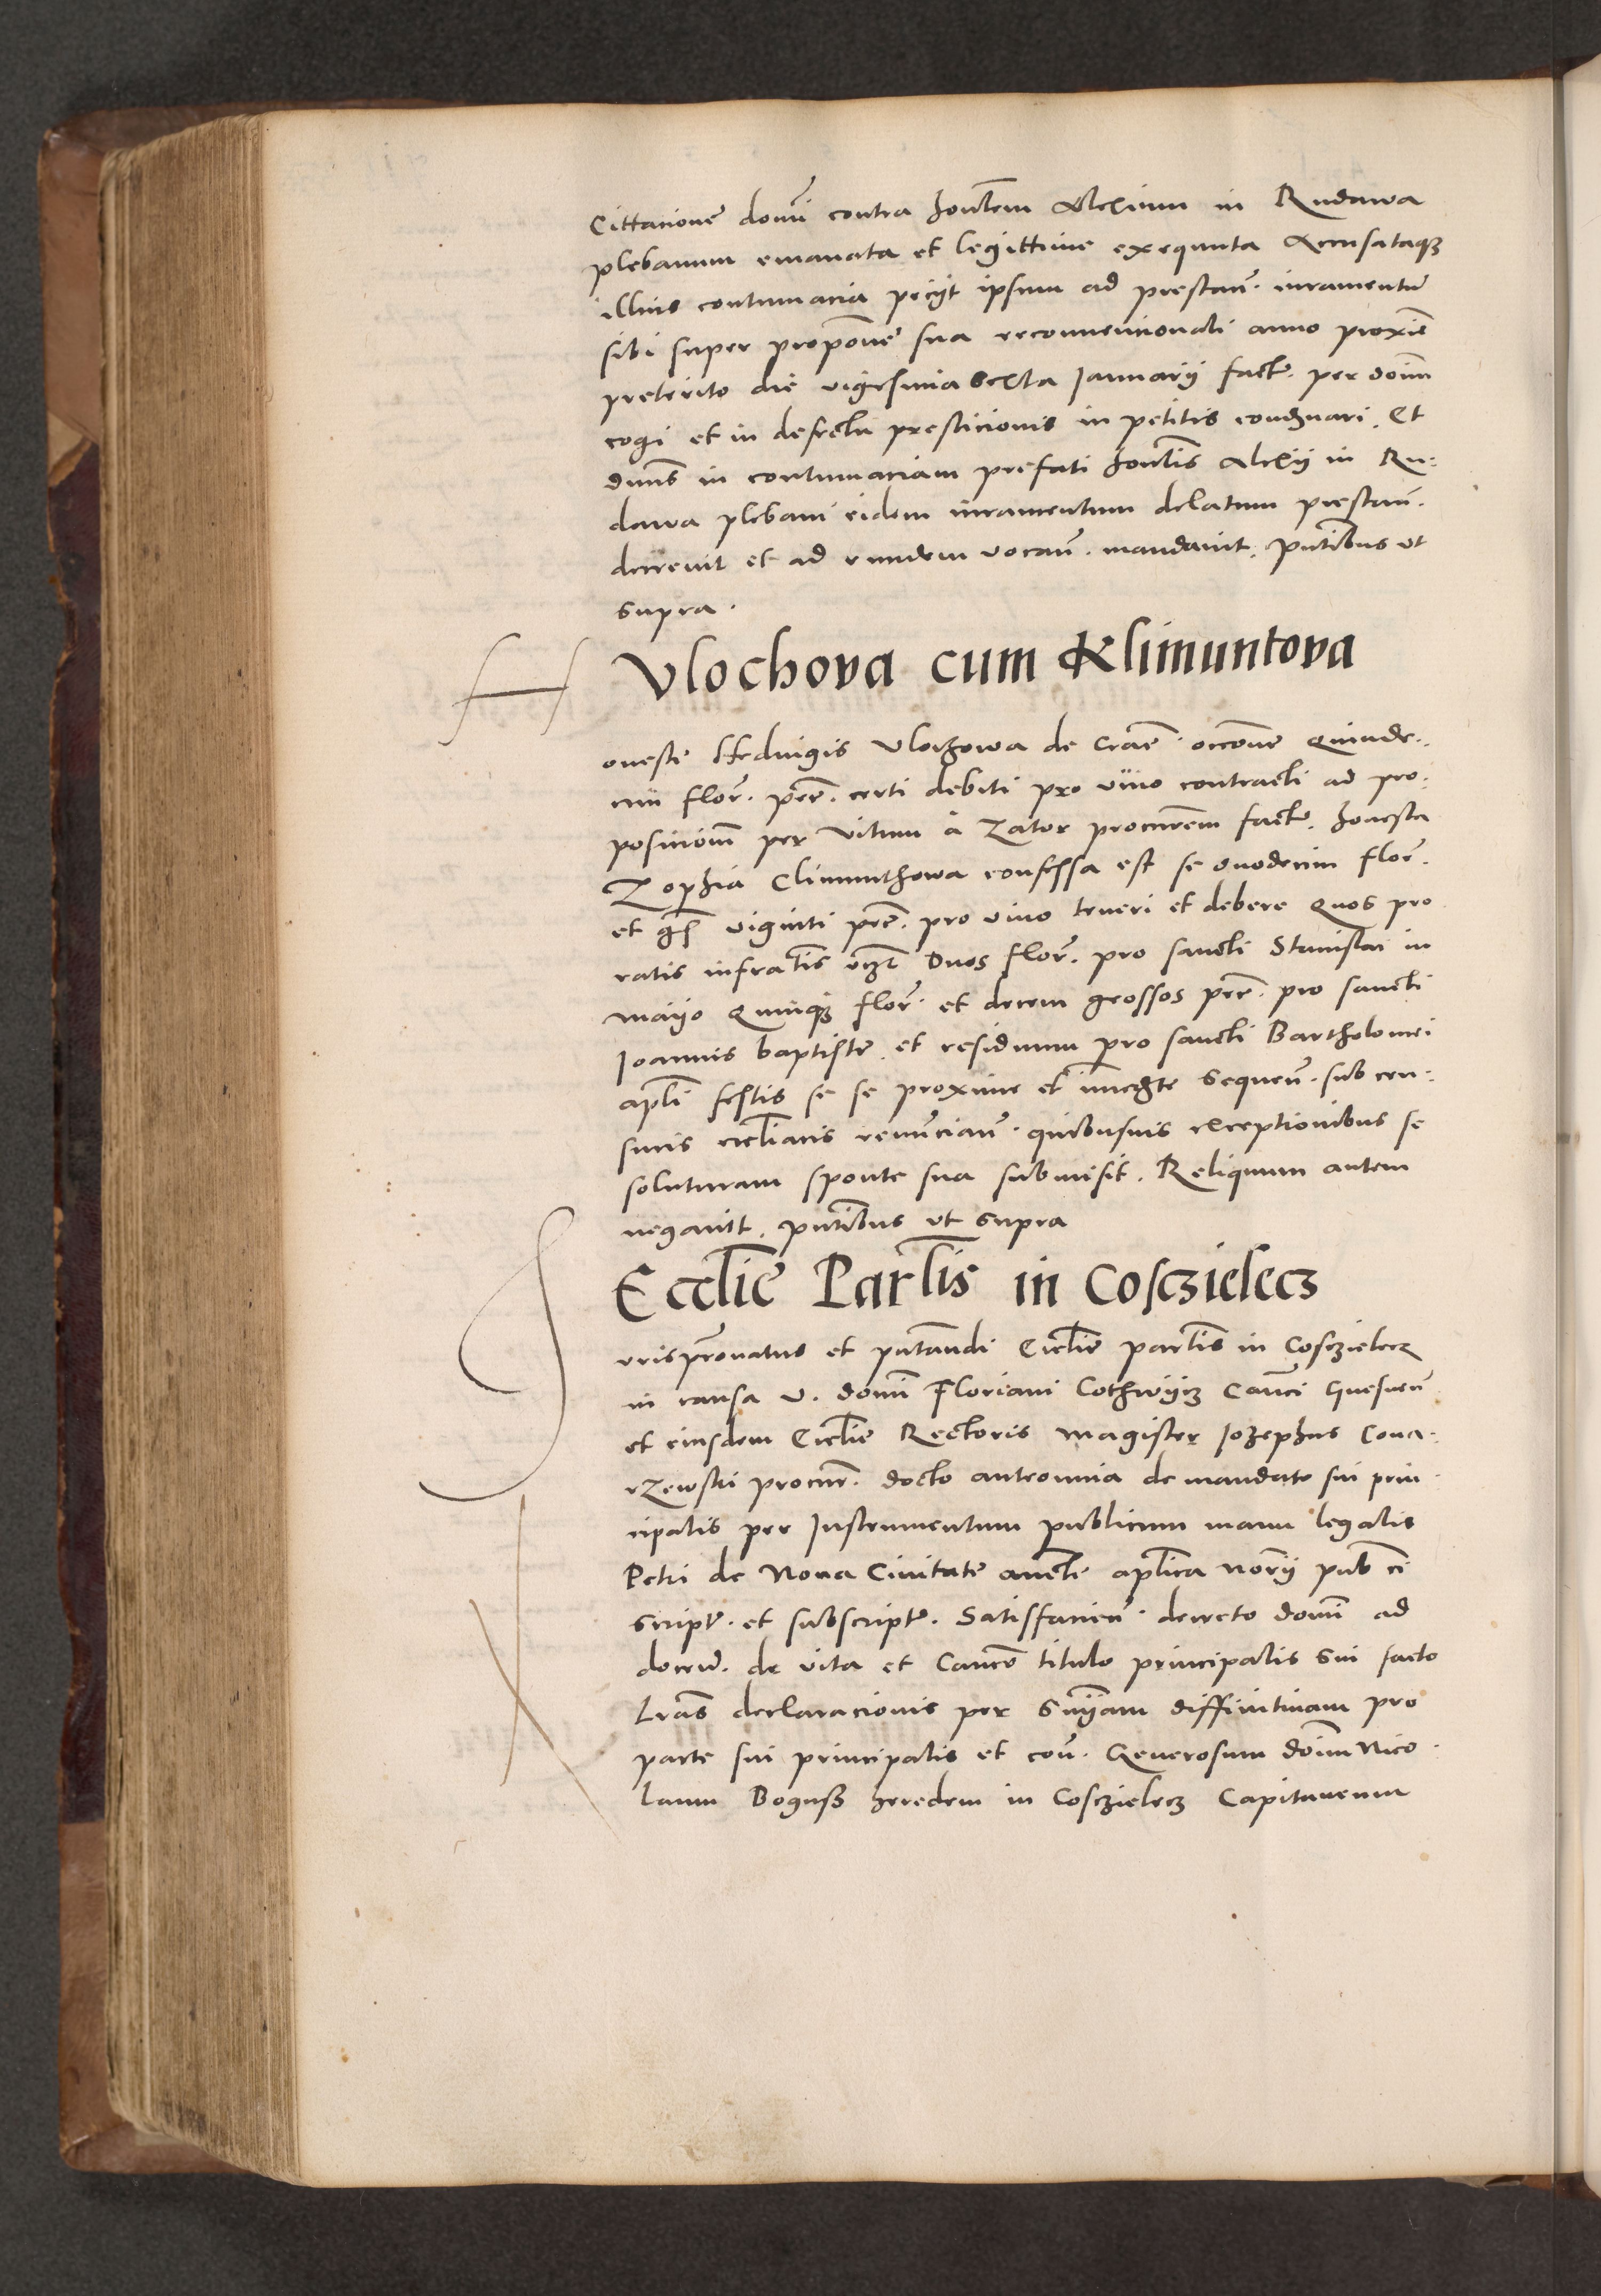 Cittacionẽ domĩ contra honlem Alexium in Rudawa
plebanum emanata et legittime exequuta Accusataqꝫ
illius contumacia peciit ipsum ad prestanᷤ. iuramentũ
sibi super proponẽ sua reconuencionali anno proxiẽ
preterito die vigesima Sexta Ianuarij factᷤ. per doim̃
cogi et in defectu presticionis in petitis condẽnari. Et
dnũs in contumaciam prefati honlis Alexij in Ru-
dawa plebani eidem iuramentum delatum prestanᷤ.
decreuit et ad eundem vocanᷤ. mandauit. pñtibus vt
supra.
Vlochova cum Klimuntova
H
oneste Hedvigis Vlochowa de Craẽ. occõne Quinde-
cim florᷤ. pẽcᷤ. certi debiti pro vino contracti ad pro-
posicioñ per Vitum à Zator procurẽm factᷤ. honesta
Zophia Climunthowa confessa est se Duodecim florᷤ.
et gross viginti pẽcᷤ. pro vino teneri et debere Quos pro
ratis infractis vꝫt Duos florᷤ. pro sancti Stanislai in
Mayo Quinqꝫ florᷤ. et decem grossos pecᷤ. pro sancti
Ioannis baptiste. et residuum pro sancti Bartholomei
apli festis se se proxime et imediate Sequenᷤ. sub cen-
suris eccliacis renuncianᷤ. quibusuis exceptionibus se
soluturam sponte sua submisit. Reliquum autem
negauit. pñtibus vt supra
Ecclie Parlis in Cosczielecz
I
urispronatus et pñtandi Ecclie parlis in Cosczielecz
in causa V. domĩ Floriani Cothwijcz Cañci Gnesnenᷤ
et eiusdem Ecclie Rectoris Magister Iozephus Cona-
rzewski procurᷤ. docto anteomnia de mandato sui prin-
cipalis per Instrumentum publicum manu legalis
Petri de Noua Ciuitate aucti aplica norij pub ci
scriptᷤ. et subscriptᷤ. Satisfacienᷤ. decreto domĩ ad
docendᷤ. de vita et Canco titulo principalis Sui facto
Lrãs declaracionis per Snĩam diffinitiuam pro
parte sui principalis et conᷤ. Generosum doim̃ Nico-
laum Boguss heredem in Cosczielecz Capitaneum